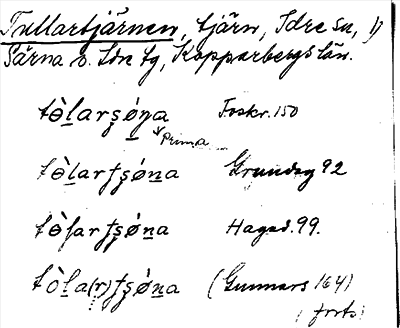 Tullartjärnen, tjärn, Idre sn, 1)
Särna o. Idre tg, Kopparbergs län.
tòlarşǿna Foskr. 150
Prima
tòlarţşǿna Grundeg 92
tòlarţşǿna Haged. 99.
tòla(r)ţşǿna (Gunnars 164)
(forts)